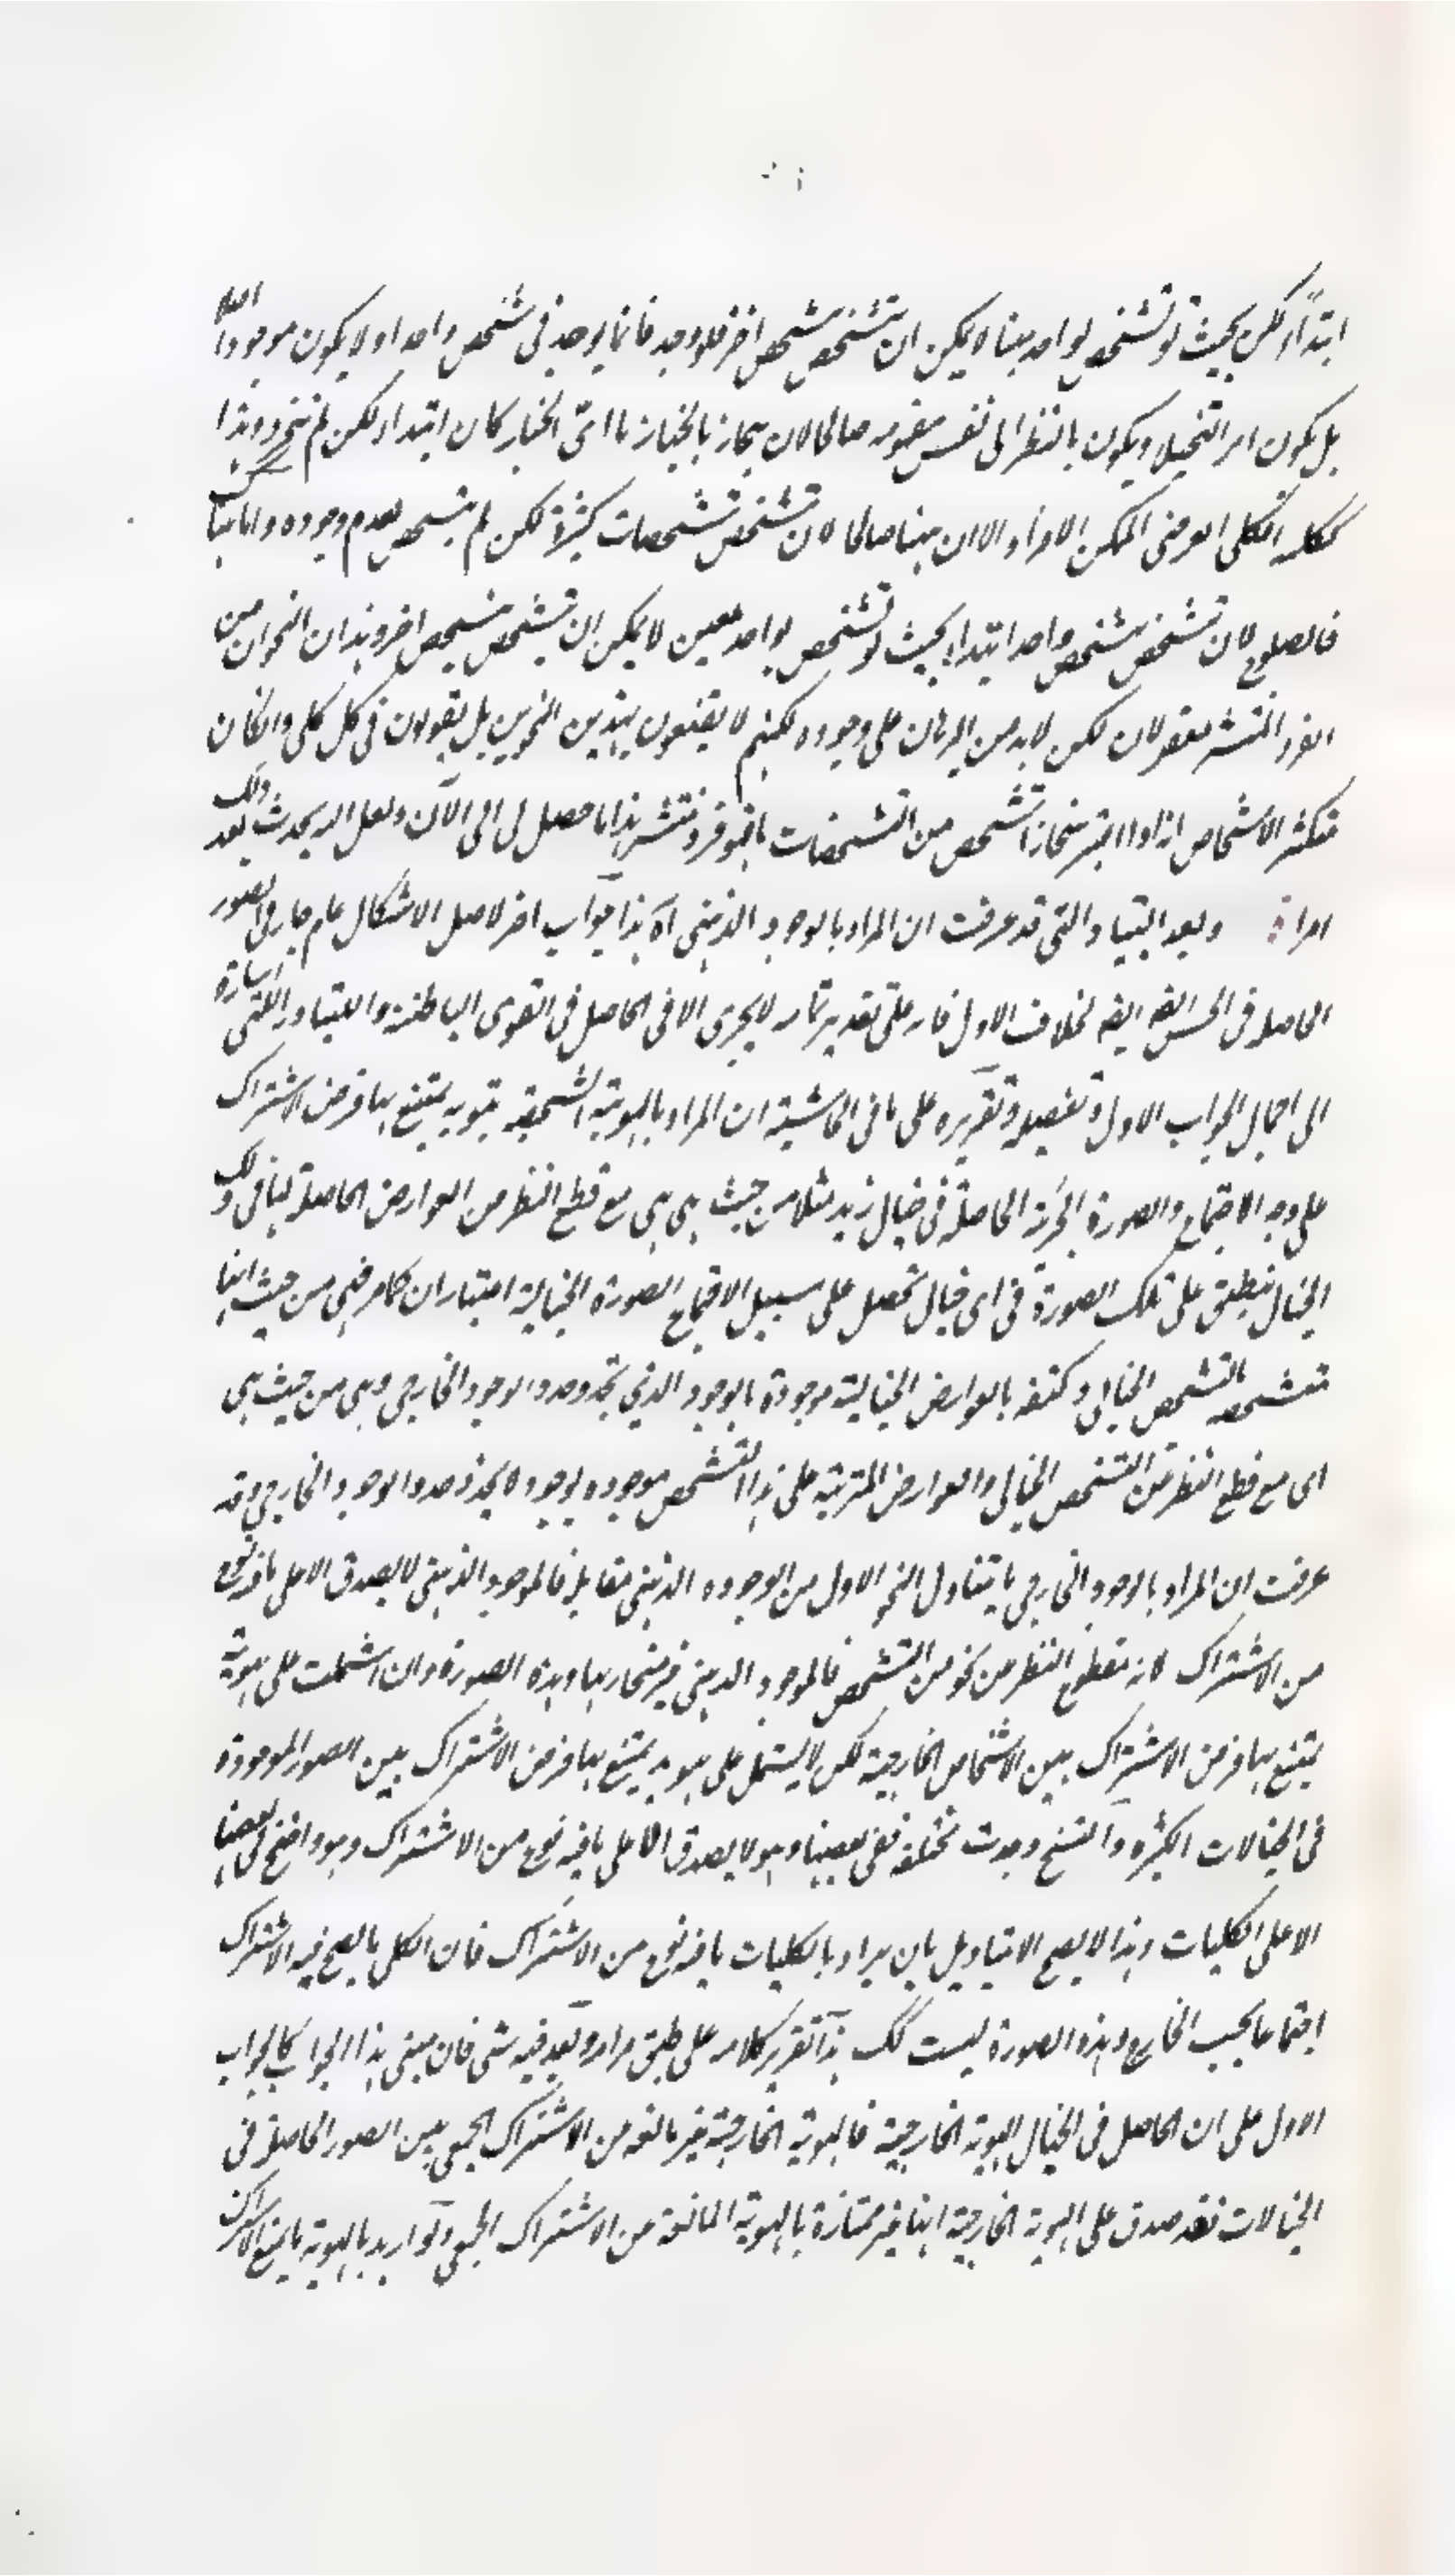 ابتداءً ولكن بحيث لو تشخص بواحد معينا لا يمكن ان تشخص بشخص اخر فلو وجد فانما يوجد في شخص واحد او لا يكون موجودا اصلا
بل يكون امر التخيلا ويكون بالنظر الى نفس مفهومه صالحا لان ينحاز بالخيار ما اى الخيار كان ابتداء ولكن لم ينحز وهذا
الكلى العرضى الممكن الافراد الا ان هنا صالحا لان تشخص تشخصات كثيرة لكن لم يتشخص لعدم وجوده واما هنا
فالصلوح لان تشخص بشخص واحد ابتداء بحيث لو تشخص بواحد معين لا يمكن ان يتشخص بشخص اخر وهذان النحوان من
الفرد المنتشر معقولان لكن لابد من البرهان على وجوده لكنهم لا يقنعون بهذين النحوين بل يقولون في كل كلى وان كان
متكثر الاشخاص اذا اعتبر منحازا بتشخص من التشخصات فهو فرد منتشر هذا ما حصل لى الى الآن ولعل الله يحدث بعد ذلك
امرا وبعد اللتيا والتى قد عرفت ان المراد بالوجود الذهنى آه هذا جواب اخر لاصل الاشكال عام جار فى الصور
الحاصلة فى الحس ايضا بخلاف الاول فانه على تقدير تمامه لا يجرى الا فى الحاصل فى القوى الباطنة واللتيا والتى اشارة
الى اجمال الجواب الاول وتفصيله وتقريره على ما فى الحاشية ان المراد بالهوية الشخصية هوية يمتنع بها فرض الاشتراك
على وجه الاجتماع والصورة الجزئية الحاصلة فى خيال زيد مثلا من حيث هى هى مع قطع النظر من العوارض الحاصلة لها فى ذلك
الخيال ينطبق على تلك الصورة فى اى خيال تحصل على سبيل الاجتماع الصورة الخيالية اعتباران كما مر فهى من حيث انها
متشخصة بالتشخص الخيالى ومكتنفة بالعوارض الخيالية موجودة بالوجود الذى يحذو حذو الوجود الخارجى وهى من حيث هى
اى مع قطع النظر من التشخص الخيالى والعوارض المترتبة على هذا التشخص موجودة بوجود لا يحذو حذو الوجود الخارجى وقد
عرفت ان المراد بالوجود الخارجى ما يتناول النحو الاول من الوجود الذهنى مقابله فالموجود الذهنى لا يصدق الا على ما فيه نوع
من الاشتراك لانه مقطوع النظر من نحو من التشخص فالموجود الذهنى غير منحاز بها وهذه الصورة وان اشتملت على هوية
يمتنع بها فرض الاشتراك بين الاشخاص الخارجية لكن لا يشتمل على هوية يمتنع بها فرض الاشتراك بين الصور الموجودة
فى الخيالات الكثيرة والنسخ وجدت مختلفة ففى بعضها وهو لا يصدق الا على ما فيه نوع من الاشتراك وهو واضح وفى بعضها
الا على الكليات وهذا لا يصح الا بتاويل بان يراد بالكليات ما فيه نوع من الاشتراك فان الكلى ما يصح فيه الاشتراك
اجتماعا بحسب الخارج وهذه الصورة ليست كك هذا تقرير كلامه على طبق مرامه وبعد فيه شى فان مبنى هذا الجواب كالجواب
الاول على ان الحاصل فى الخيال الهوية الخارجية فالهوية الخارجية غير مانعة من الاشتراك الجمعى بين الصور الحاصلة فى
الخيالات فقد صدق على الهوية الخارجية انها غير ممتازة بالهوية المانعة من الاشتراك الجمعى ولو اريد بالهوية ما يمنع الاشتراك